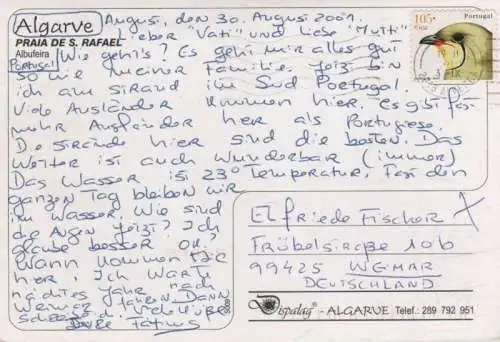 Algarve
PRAIA DE S. RAFAEL
Albufeira
Portugal
Angusi, den 30. Augusi 2001.
Lieber "Vati" und liebe "Mutti"
Wie gehi's? Es gehi mir alles gui
so wie meiner Familie. Jeizi bin
ich am sirand im Sud Portugal.
Viele Ausländer kommen hier. Es gibi fasi
mehr Ausländer her als Poriugiese.
Die sirände hier sind die besten. Das
Weiter ist auch wunderbar (immer)
Das Wasser isi 23° Temperatur. Fasi den
ganzen Tag bleiben wir
im Wasser. Wie sind
die Augen jeizi? Ich
glaube besser ok?
Wann kommen Sie
hier. Ich warte
nächsies jahr nach
Weimar fahren. Dann
105-
Portugal
Elfriede Fischer
Fröbelsiraße 10b
99425 WEIMAR
DEUTSCHLAND
Dispalag - ALGARVE Telef.: 289 792 951